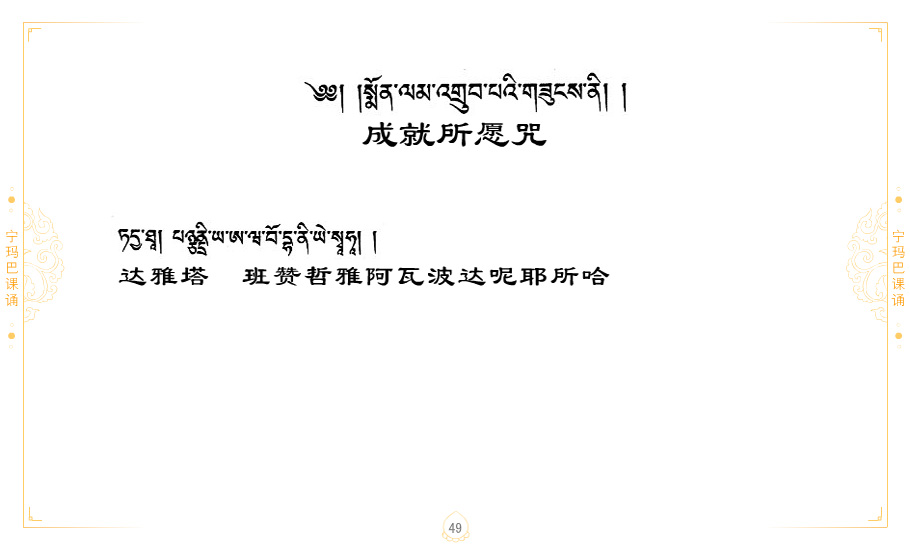 ༄༅། །སྨོན་ལམ་འགྲུབ་པའི་གཟུངས་ནི། །
成就所愿咒
ཏདྱ་ཐཱ། པཉྩནྡྲི་ཡ་ཨ་ཝ་བོ་དྷ་ནི་ཡེ་སྭཱ་ཧཱ། །
达雅塔 班赞哲雅阿瓦波达呢耶所哈
宁玛巴课诵
宁玛巴课诵
49